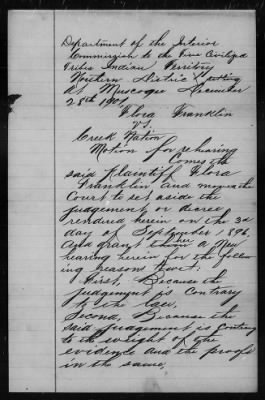 Department of the Interior
Commission to the Five Civilized
Tribes Indian Territory
Western District sitting
at Muscogee December
28th 1901
Flora Franklin
vs.
Creek Nation
Motion for rehearing
Comes the
said Plaintiff Flora
Franklin and moves the
Court to set aside the
judgement or decree
rendered herein on the 3d
day of September 1896.
And grant her a New
hearing herein for the follow
ing reasons towit:
First, Because the
judgement is contrary
to the law.
Second, Because the
said judgement is contrary
to the weight of the
evidence and the proofs
in the same,